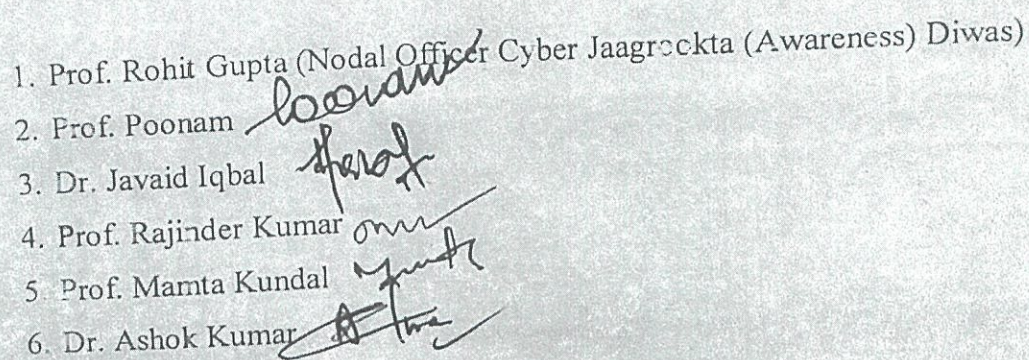 1. Prof. Rohit Gupta (Nodal Officer Cyber Jaagrookta (Awareness) Diwas)
2. Prof. Poonam
3. Dr. Javaid Iqbal
4. Prof. Rajinder Kumar
5. Prof. Mamta Kundal
6. Dr. Ashok Kumar